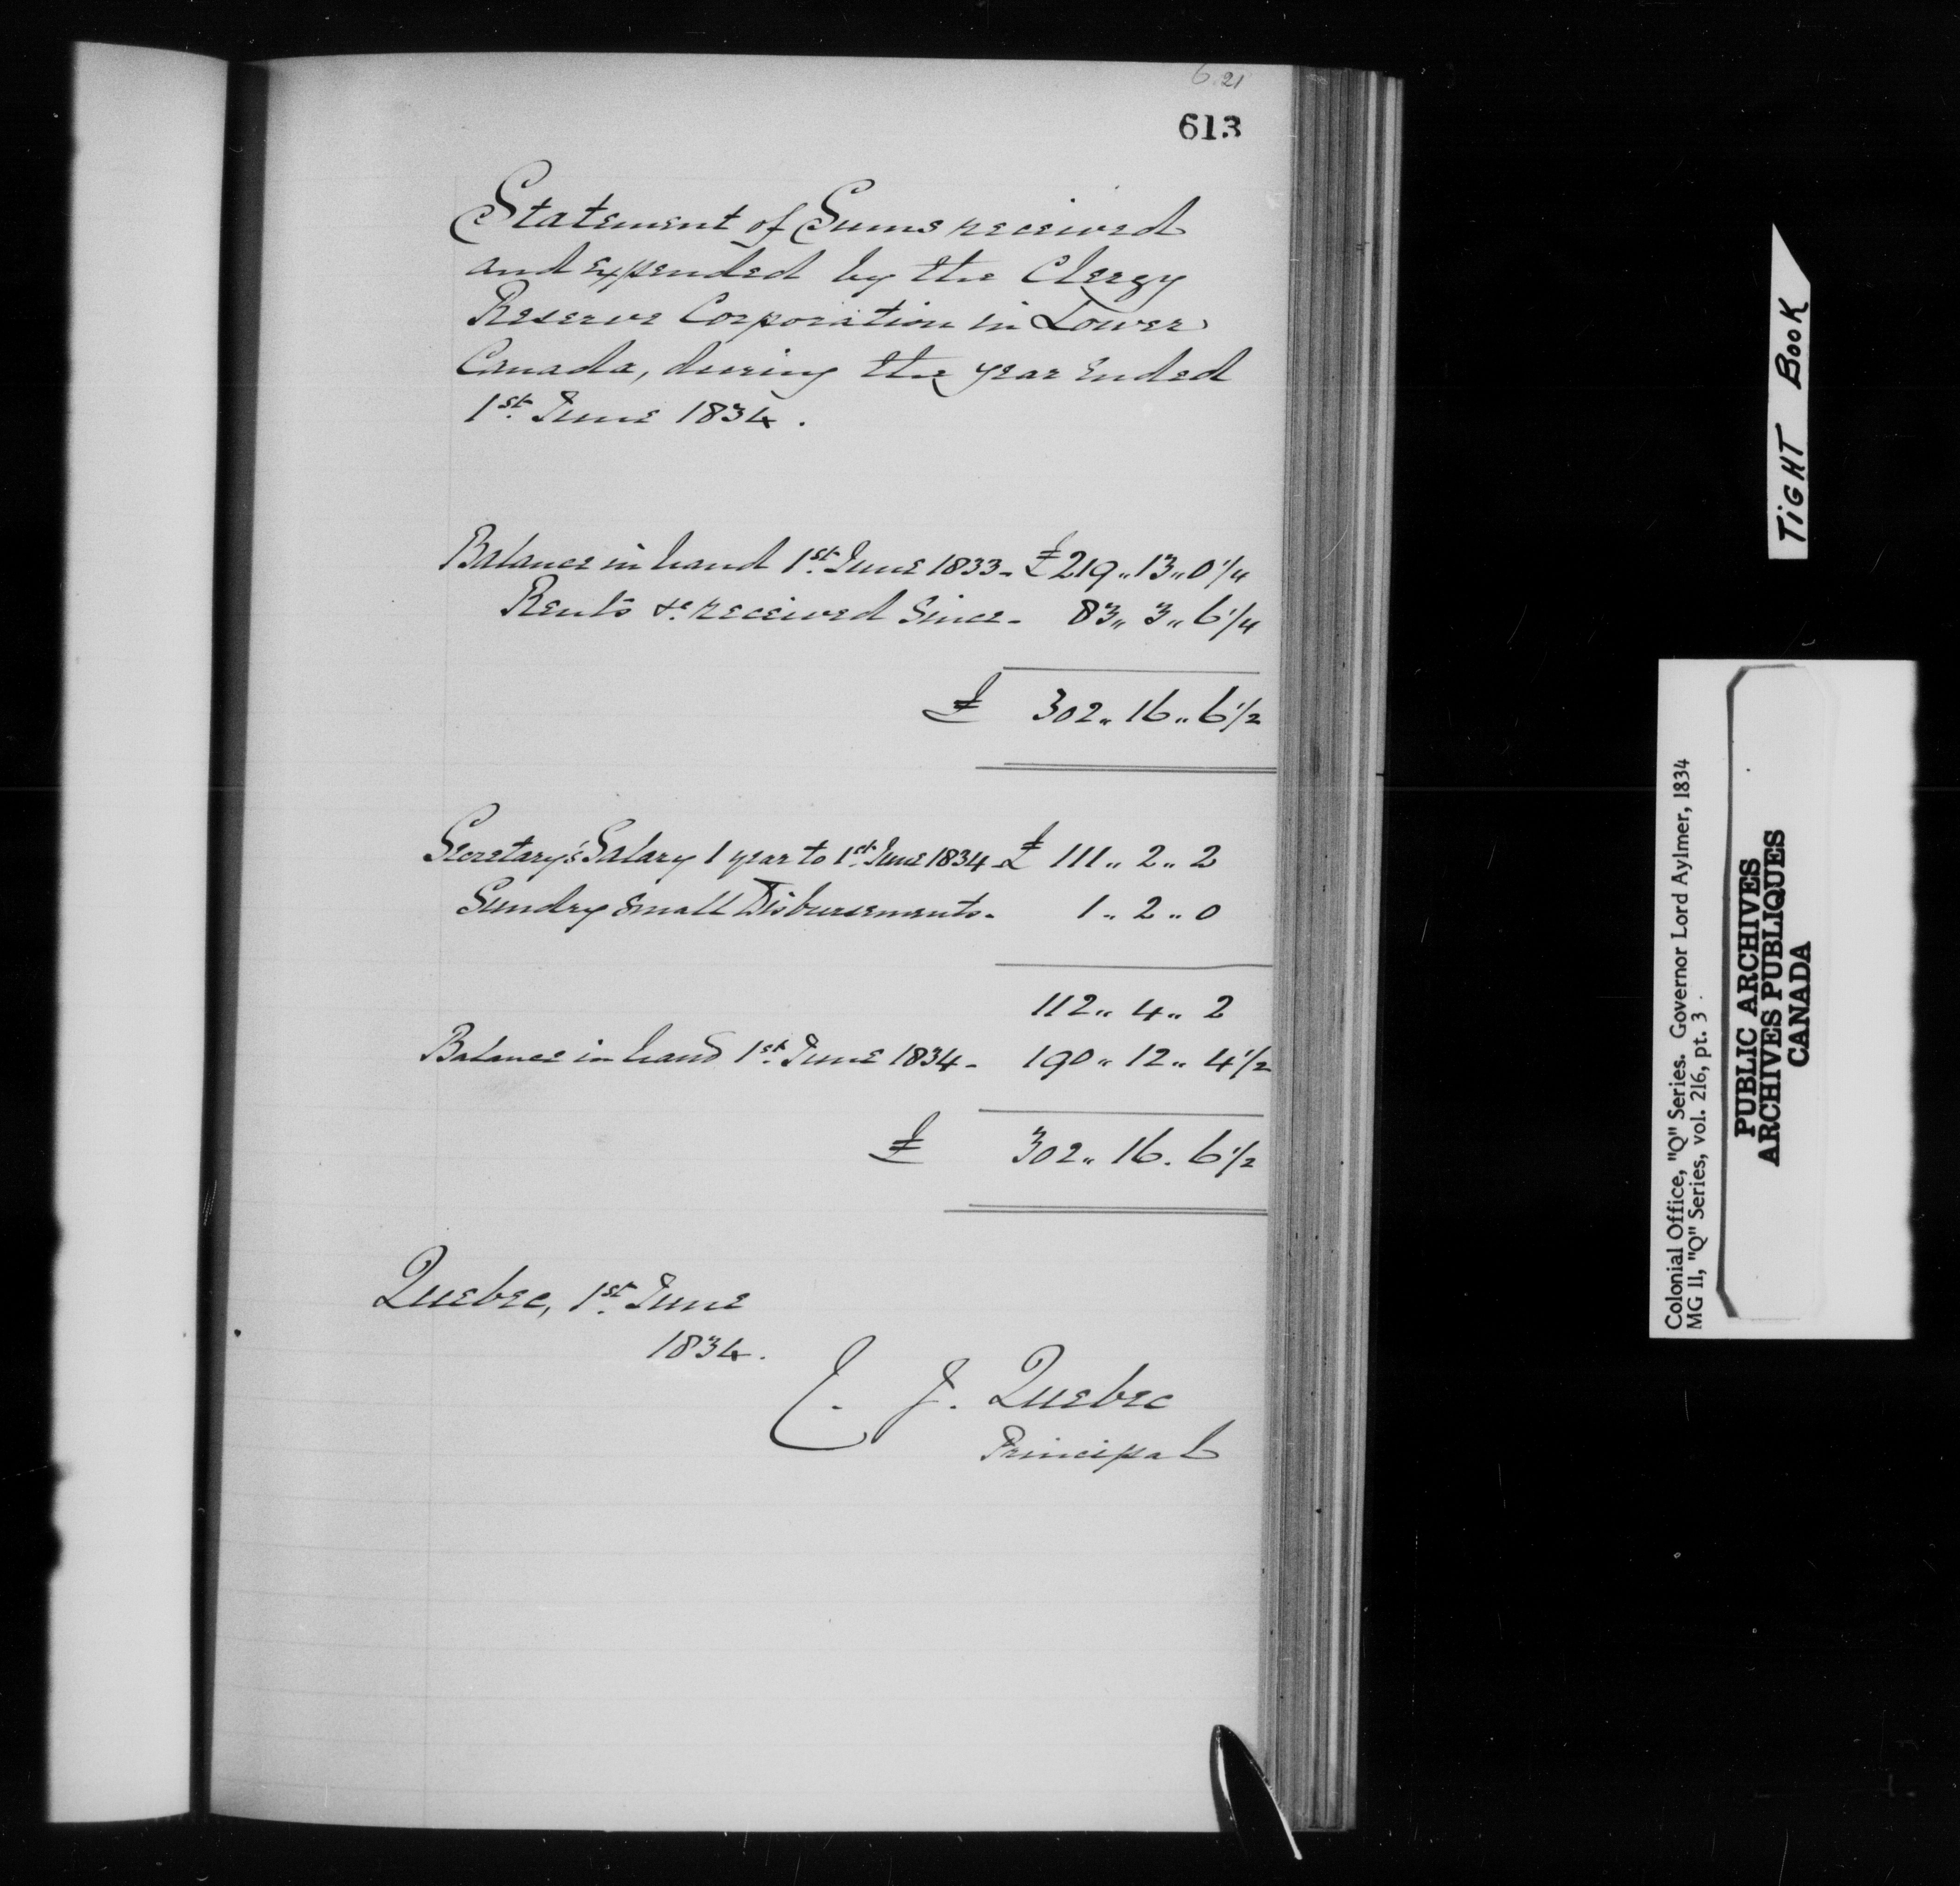 6.21
613
Statement of Sums received
and expended by the Clergy
Reserve Corporation in Lower
Canada, during the year ended
1st. June 1834.
Balance in hand 1st. June 1833 - £ 219 „ 13 „ 0 1/4
Rents &c received since - 83 „ 3 „ 6 1/4
£ 302 „ 16 „ 6 1/2
Secretary's Salary 1 year to 1st. June 1834 - £ 111 „ 2 „ 2
Sundry small Disbursements - 1 „ 2 „ 0
112 „ 4 „ 2
Balance in hand 1st. June 1834 - 190 „ 12 „ 4 1/2
£ 302 „ 16 . 6 1/2
Quebec, 1st. June
1834.
C. J. Quebec
Principal
TIGHT BOOK
Colonial Office, "Q" Series. Governor Lord Aylmer, 1834
MG 11, "Q" Series, vol. 216, pt. 3
PUBLIC ARCHIVES
ARCHIVES PUBLIQUES
CANADA